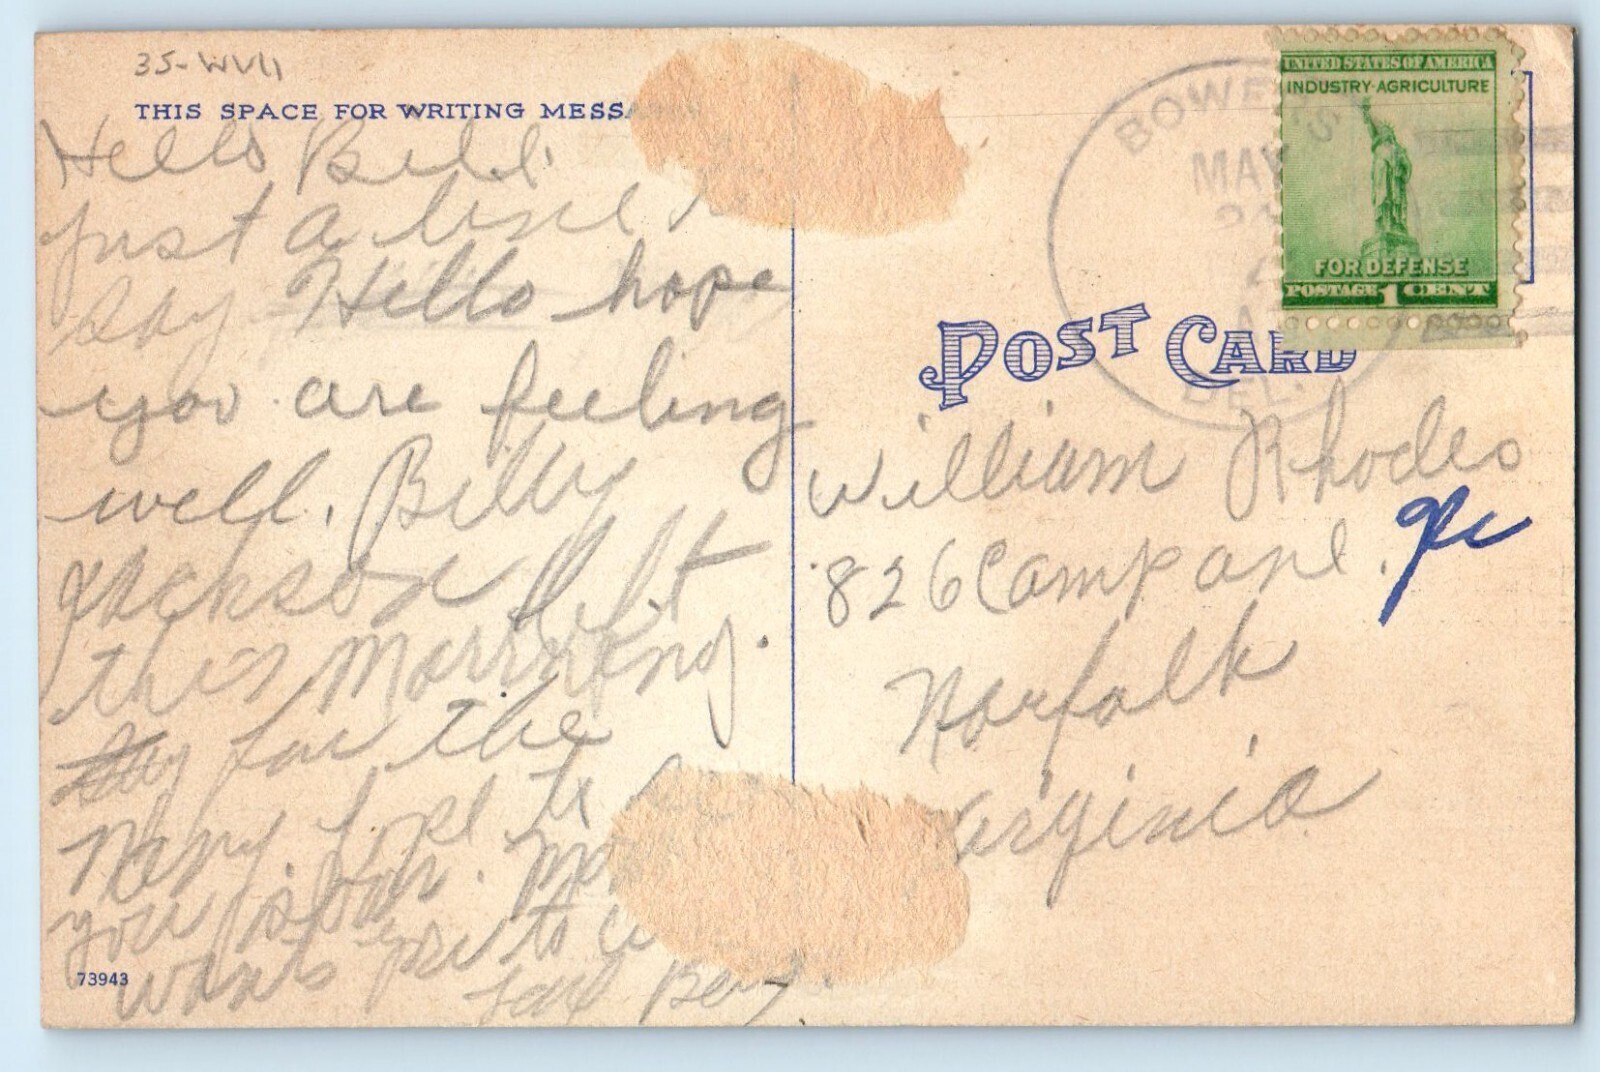 35-WVII
THIS SPACE FOR WRITING MESSA
Hello Bill.
just a line
say Hello hope
you are feeling
well. Billy
Jackson left
this Morrning.
for the
Navy. hope to
you soon.
wants you to
Bay
73943
UNITED STATES OF AMERICA
INDUSTRY·AGRICULTURE
FOR DEFENSE
POSTAGE 1 CENT
BOWERS
MAY
DEL.
POST CARD
William Rhodes
826 Campane.
Norfolk
irginia